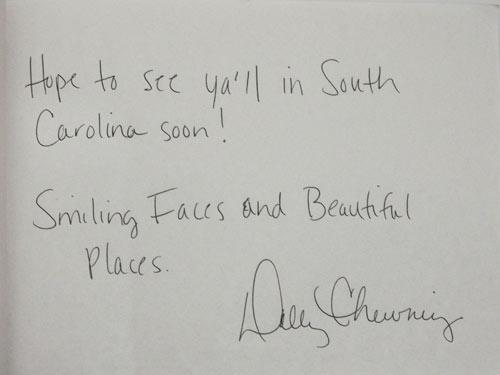 Hope to see ya'll in South
Carolina soon!
Smiling Faces and Beautiful
Places.
Chewning